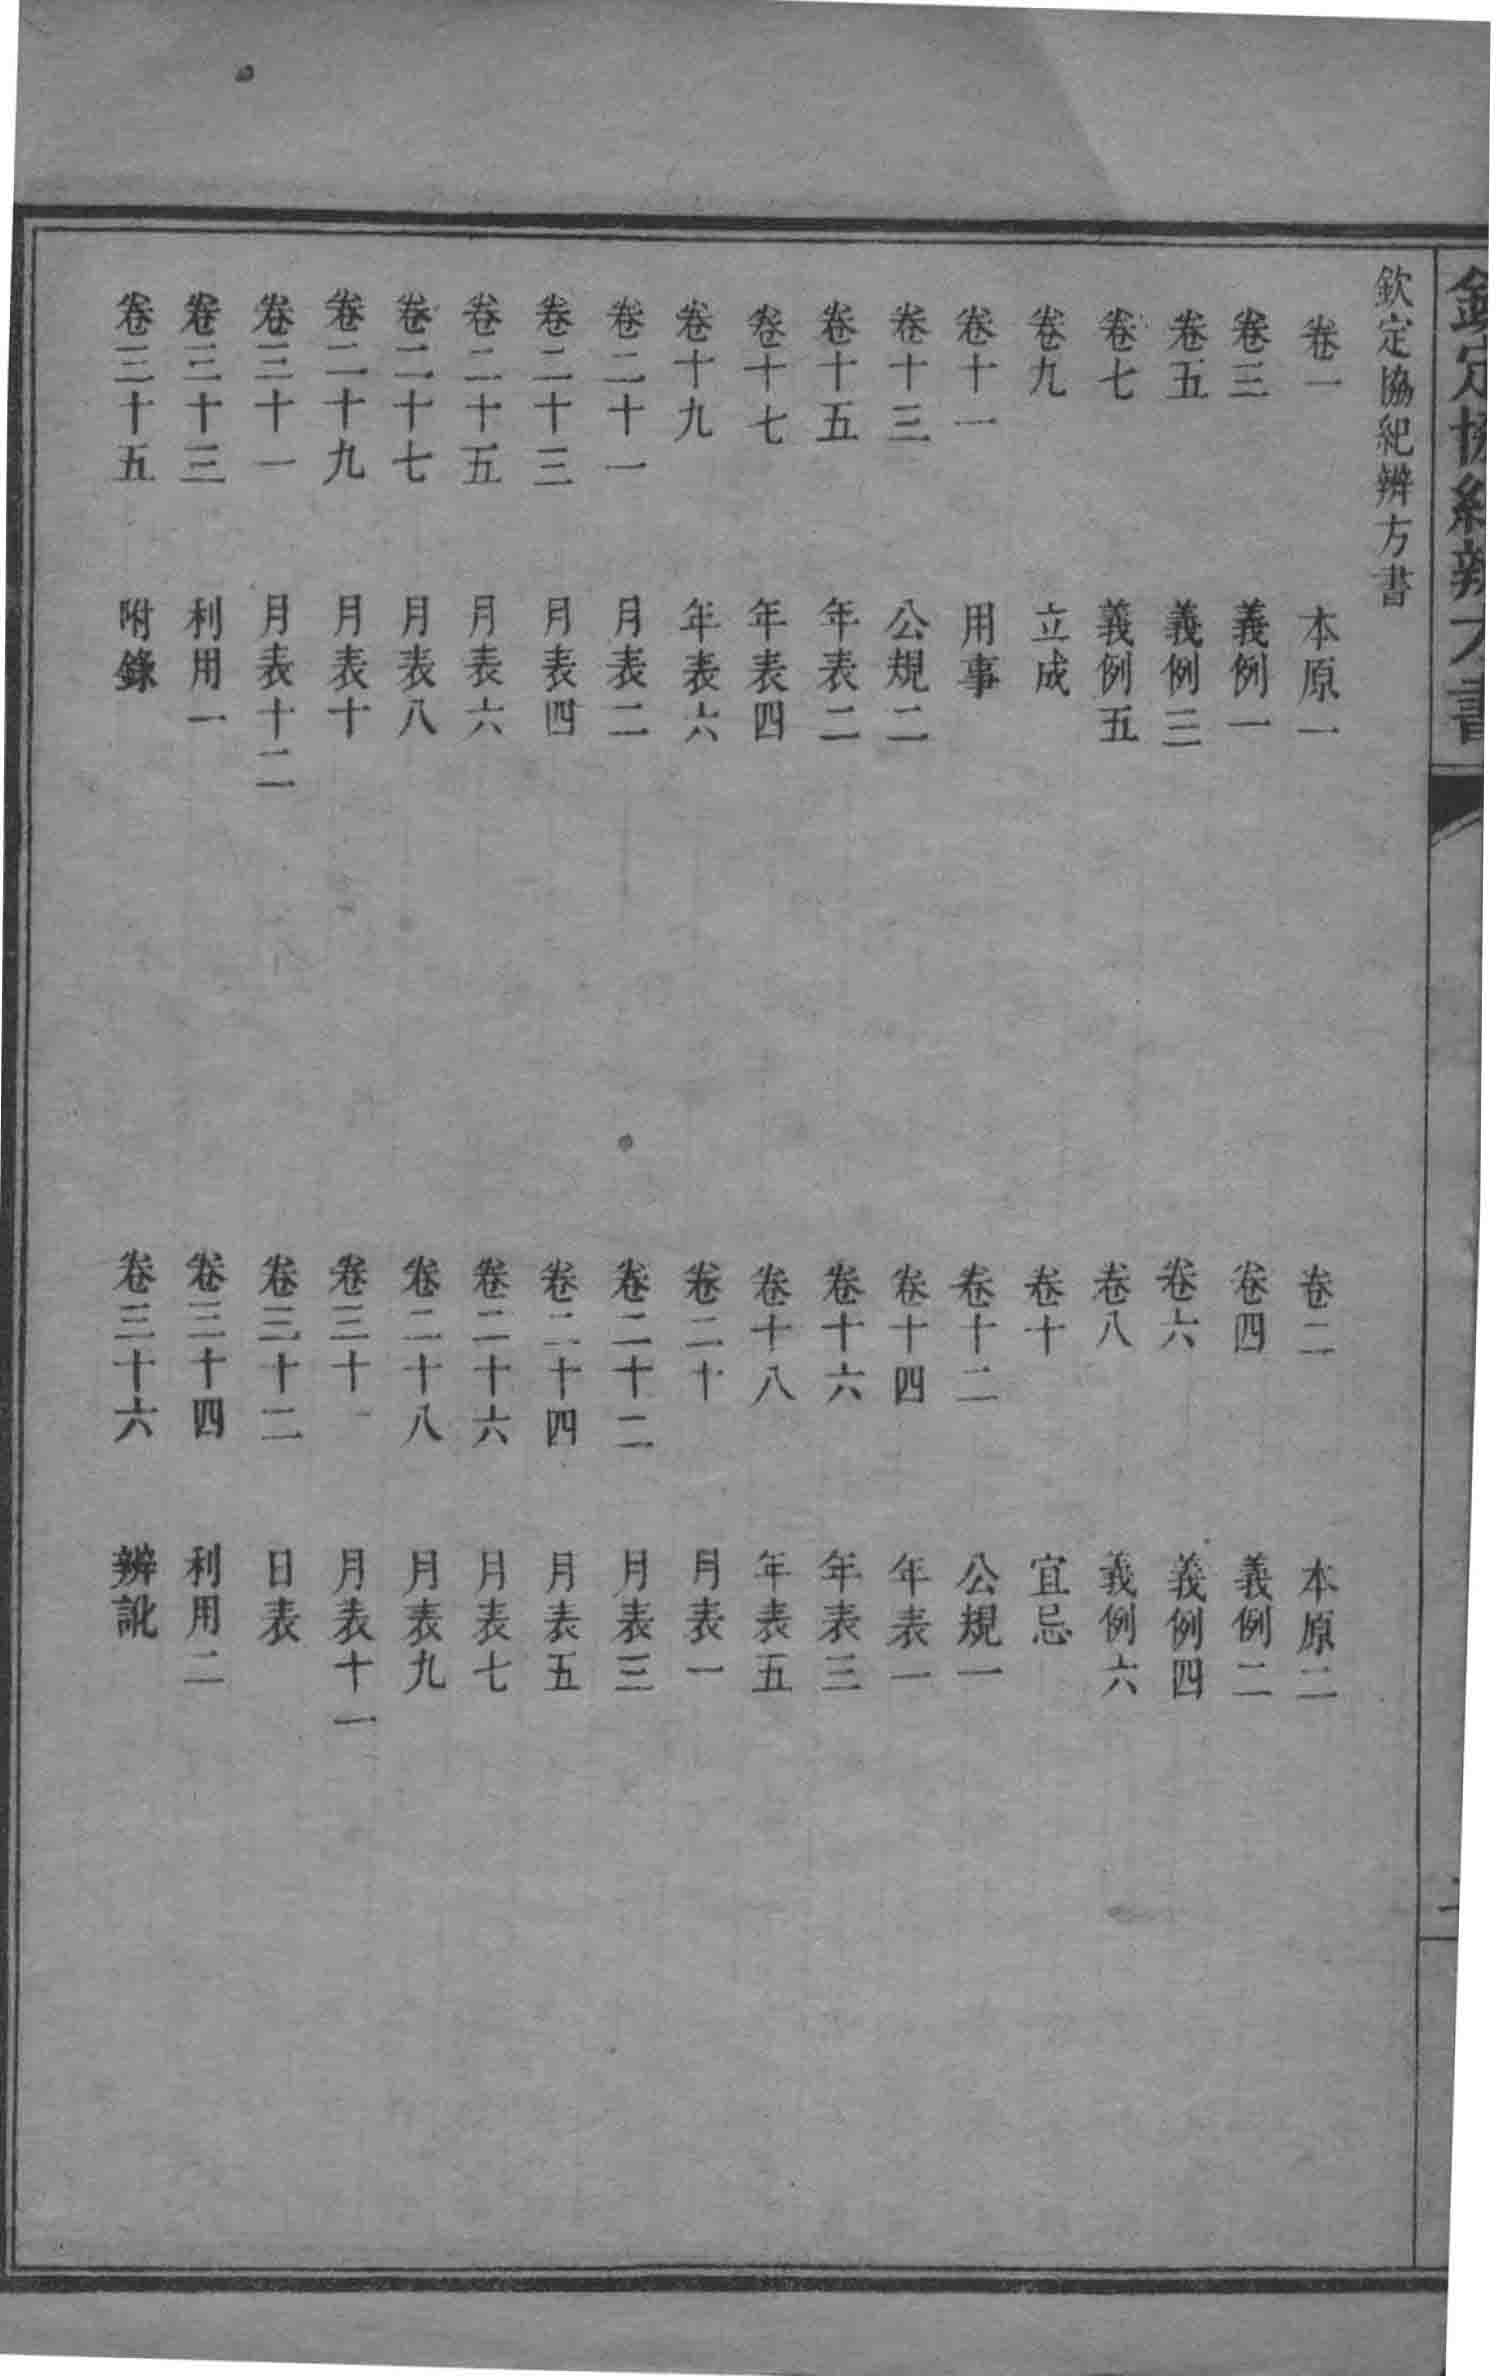 欽定協紀辨方書
欽定協紀辨方書
卷一 本原一 卷二 本原二
卷三 義例一 卷四 義例二
卷五 義例三 卷六 義例四
卷七 義例五 卷八 義例六
卷九 立成 卷十 宜忌
卷十一 用事 卷十二 公規一
卷十三 公規二 卷十四 年表一
卷十五 年表二 卷十六 年表三
卷十七 年表四 卷十八 年表五
卷十九 年表六 卷二十 月表一
卷二十一 月表二 卷二十二 月表三
卷二十三 月表四 卷二十四 月表五
卷二十五 月表六 卷二十六 月表七
卷二十七 月表八 卷二十八 月表九
卷二十九 月表十 卷三十 月表十一
卷三十一 月表十二 卷三十二 日表
卷三十三 利用一 卷三十四 利用二
卷三十五 附錄 卷三十六 辨訛